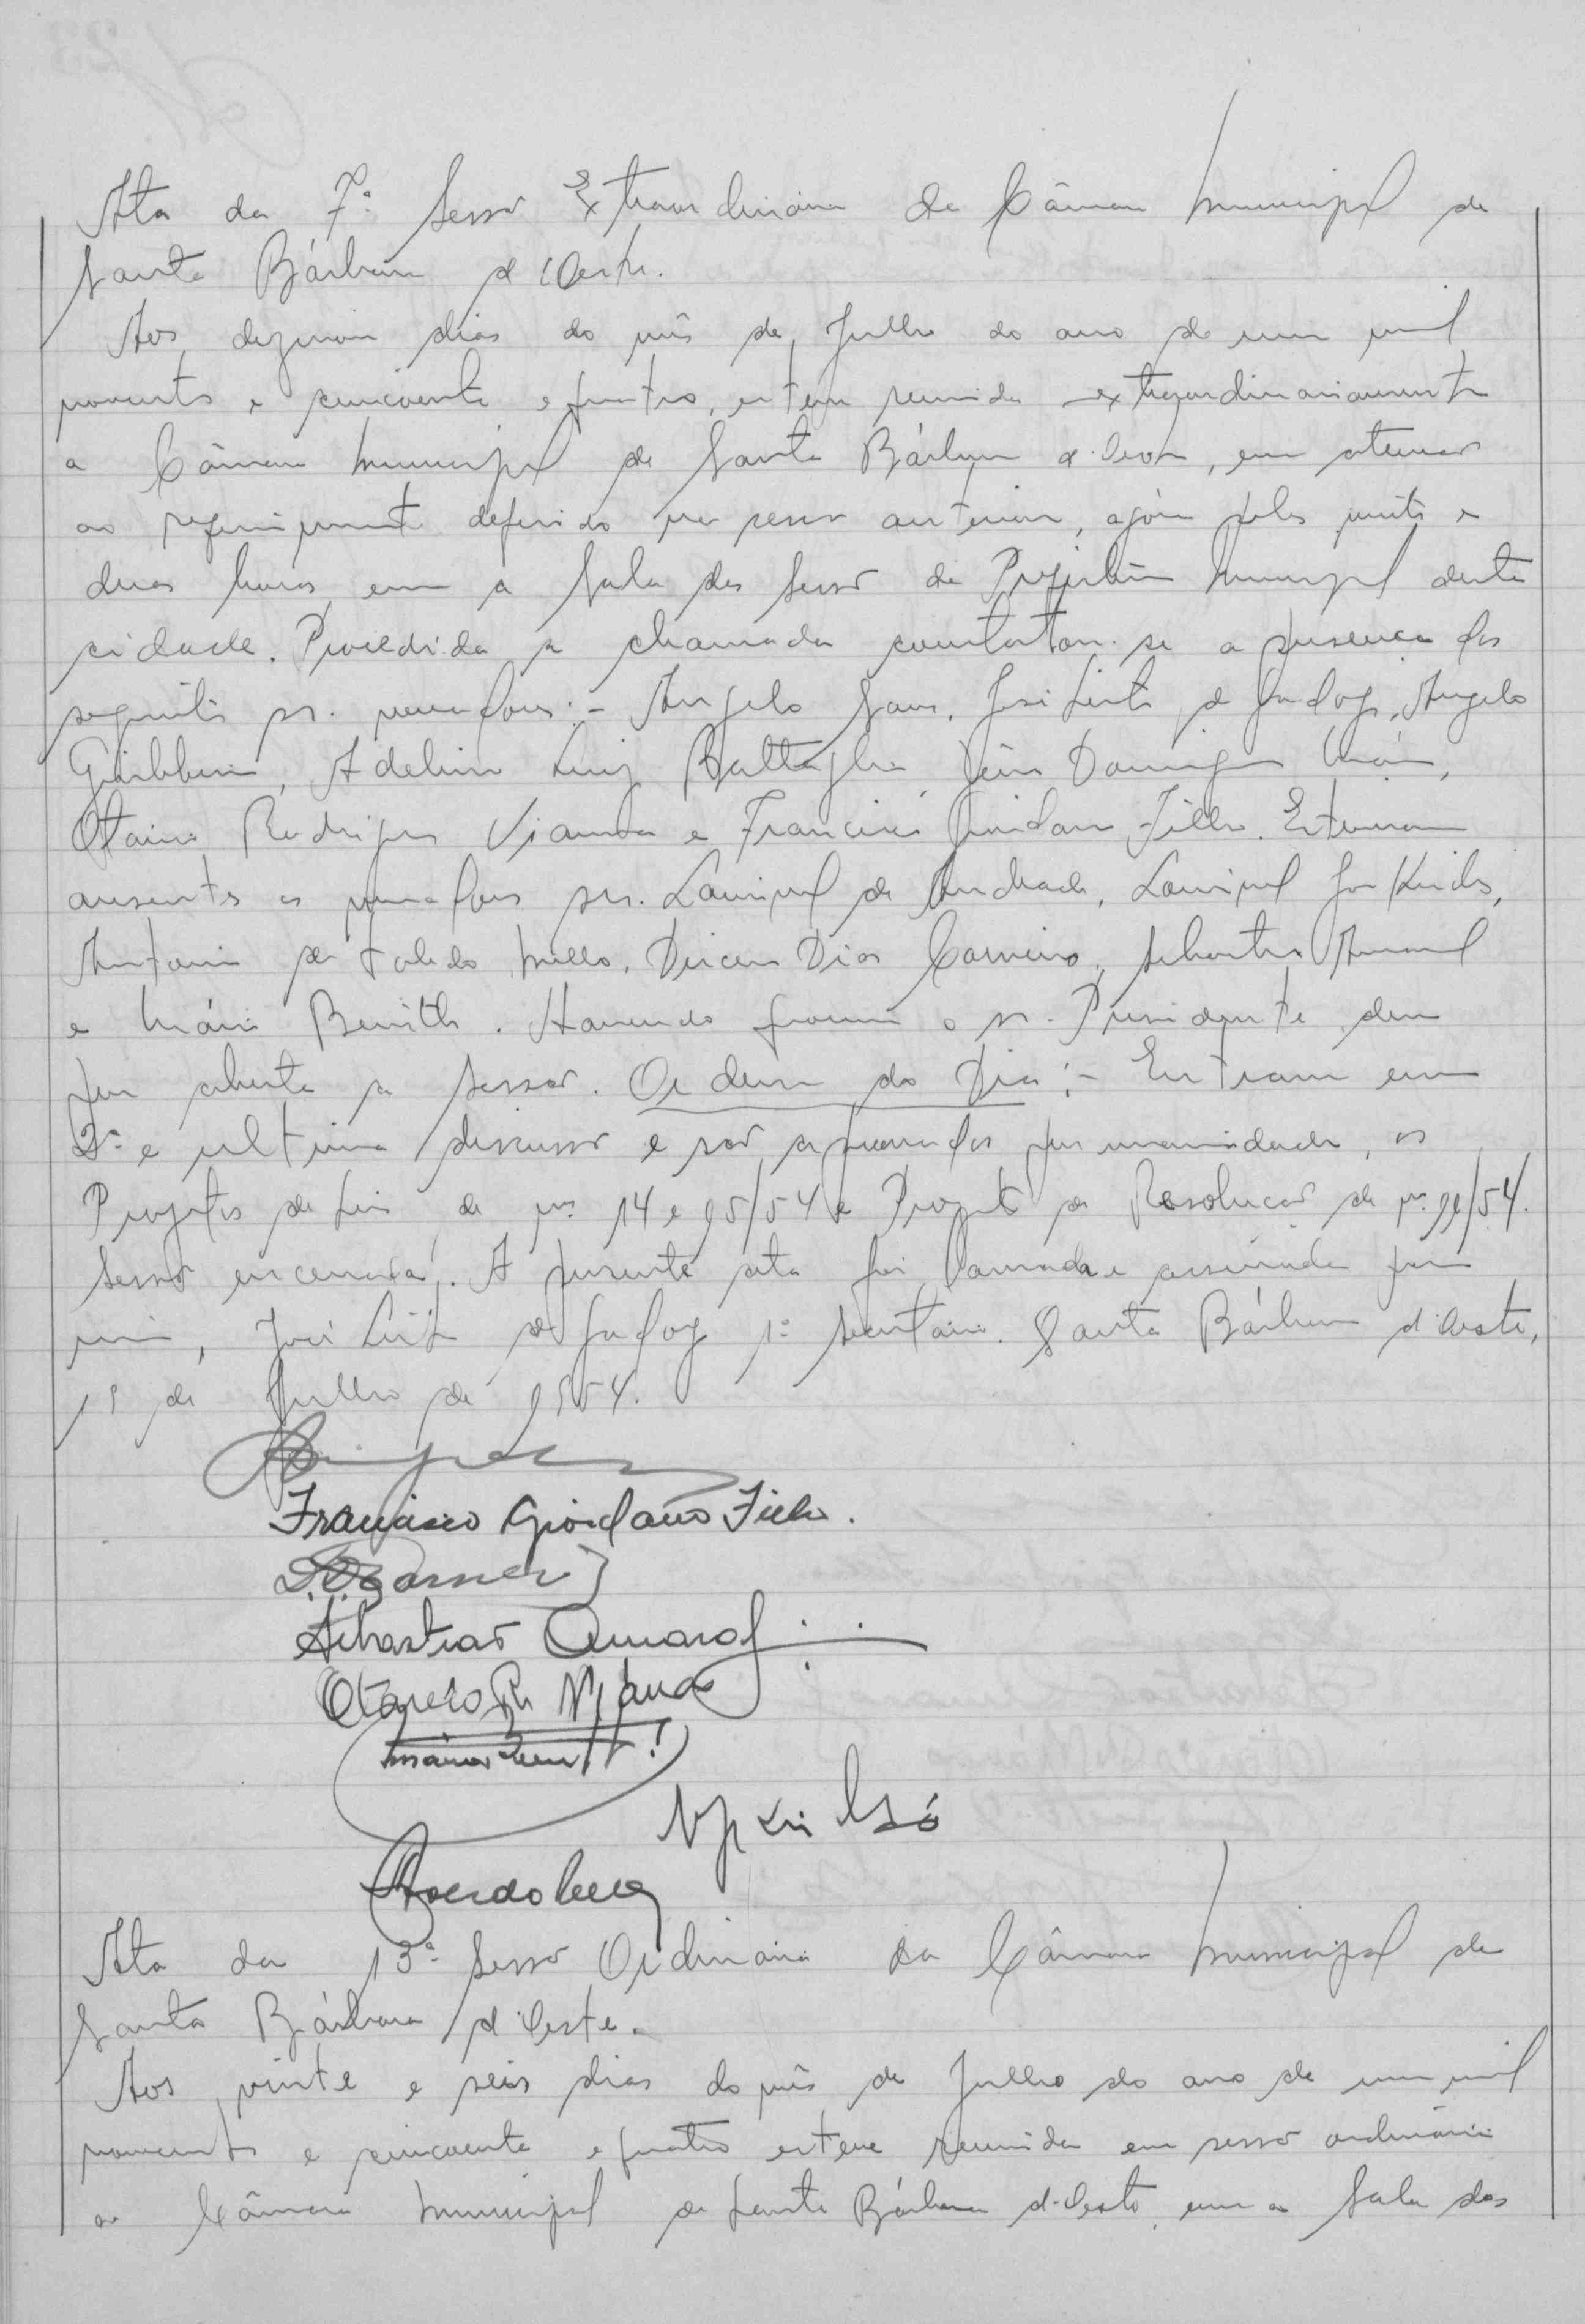 Ata da 7ª Sessão Extraordinária da Câmara Municipal de
Santa Bárbara d'Oeste.
Aos dezenove dias do mês de Julho do ano de um mil
novecentos e cincoenta e quatro, esteve reunida extraordinariamente
a Câmara Municipal de Santa Bárbara d'Oeste, em atenção
ao requerimento deferido na sessão anterior, após pelas vinte e
duas horas em a Sala das Sessões da Prefeitura Municipal desta
cidade. Procedida a chamada constatou-se a presença dos
seguintes srs. vereadores:- Angelo Sans, José Leite de Godoy, Angelo
Giubbina, Adelino Luiz Battaglia, Domingos
Otavio Rodrigues Vianna e Francisco Giordano Filho. Estiveram
ausentes os vereadores srs. Lourival de Andrade, Lourival
Antonio de Toledo Mello, Dirceu Dias Carneiro, Sebastião Amaral
e Mário Benith. Havendo quorum o sr. Presidente deu
por aberta a sessão. Ordem do Dia:- Entram em
2ª e ultima discussão e são aprovados por unanimidade, os
Projetos de Leis de nºs 14 e 15/54 e Projeto de Resolução de nº /54.
Sessão encerrada. A presente ata foi lavrada e assinada por
mim, José Leite de Godoy 1º Secretario. Santa Bárbara d'Oeste,
19 de Julho de 1954.
Francisco Giordano Filho.
Sebastião Amaral
Otavio R. Viana
Mário Benith
Ata da 13ª Sessão Ordinária da Câmara Municipal de
Santa Bárbara d'Oeste.
Aos vinte e seis dias do mês de Julho do ano de um mil
novecentos e cincoenta e quatro esteve reunida em sessão ordinária
a Câmara Municipal de Santa Bárbara d'Oeste, em a Sala das